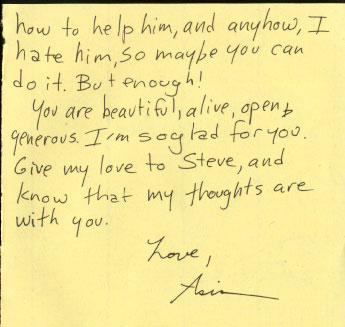 how to help him, and anyhow, I
hate him, so maybe you can
do it. But enough!
You are beautiful, alive, open,
generous. I'm so glad for you.
Give my love to Steve, and
know that my thoughts are
with you.
Love,